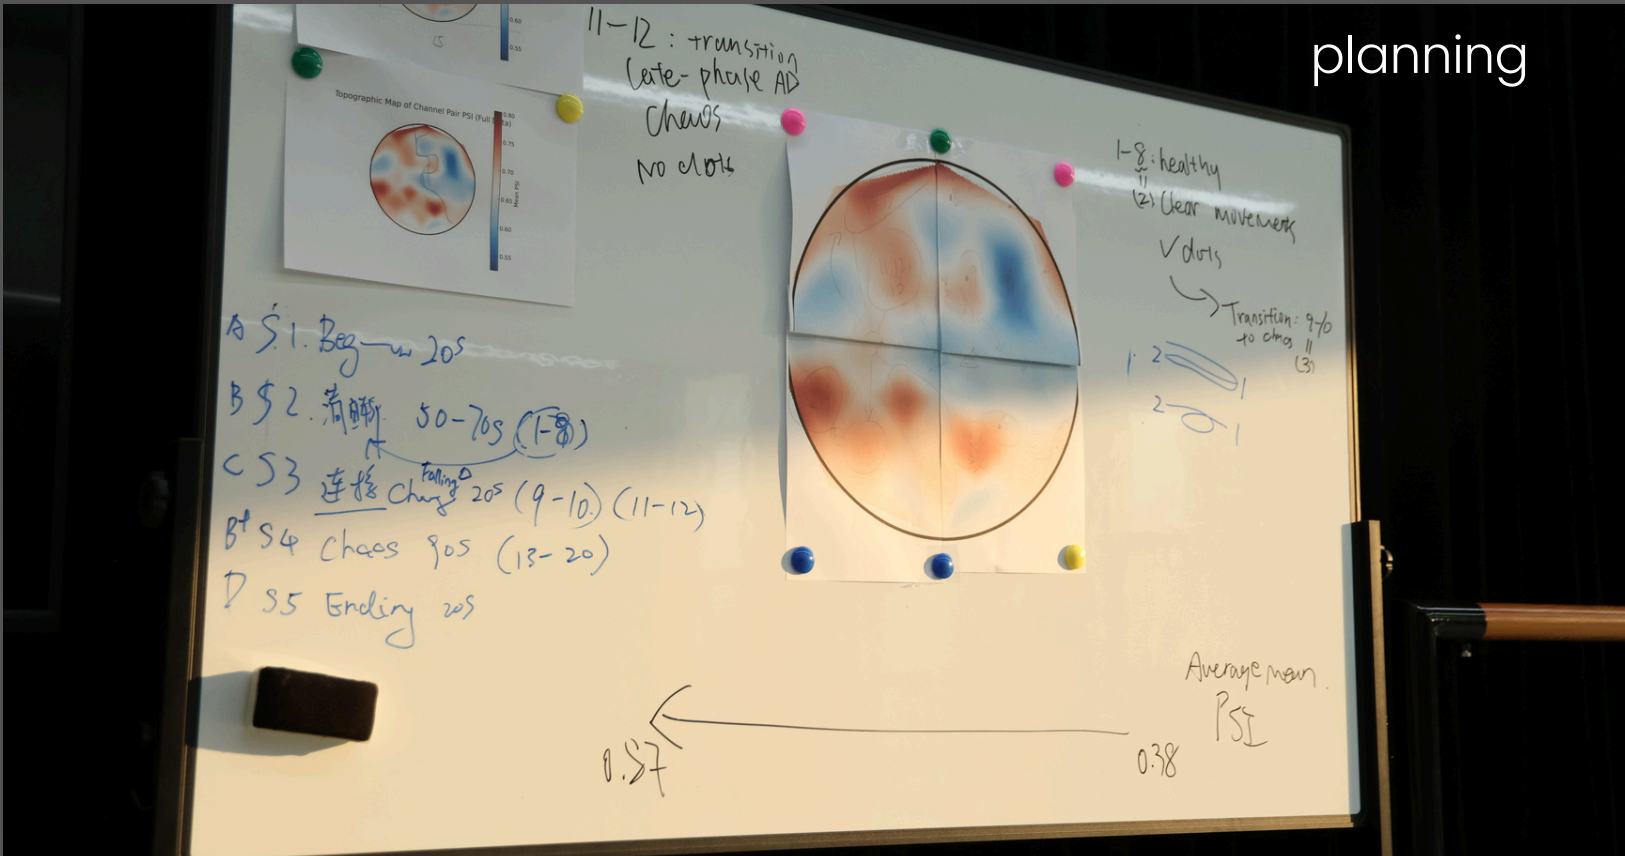 planning
0.60
0.55
15
Topographic Map of Channel Pair PSI (Full
ta)
0.80
0.75
0.70
0.65
0.60
0.55
Mean PSI
11-12: transition
late-phase AD
Chaos
No dots
1-8: healthy
(2) Clear movements
√ dots
Transition: 9-10
to chaos
(3)
1 2 1
2 1
A S.1. Beg 20s
B S2. 清晰 50-70s (1-8)
Falling
C S3 连接 Chang 20s (9-10) (11-12)
B+ S4 Chaos 90s (13-20)
D S5 Ending 20s
Average mean
PSI
0.57
0.38